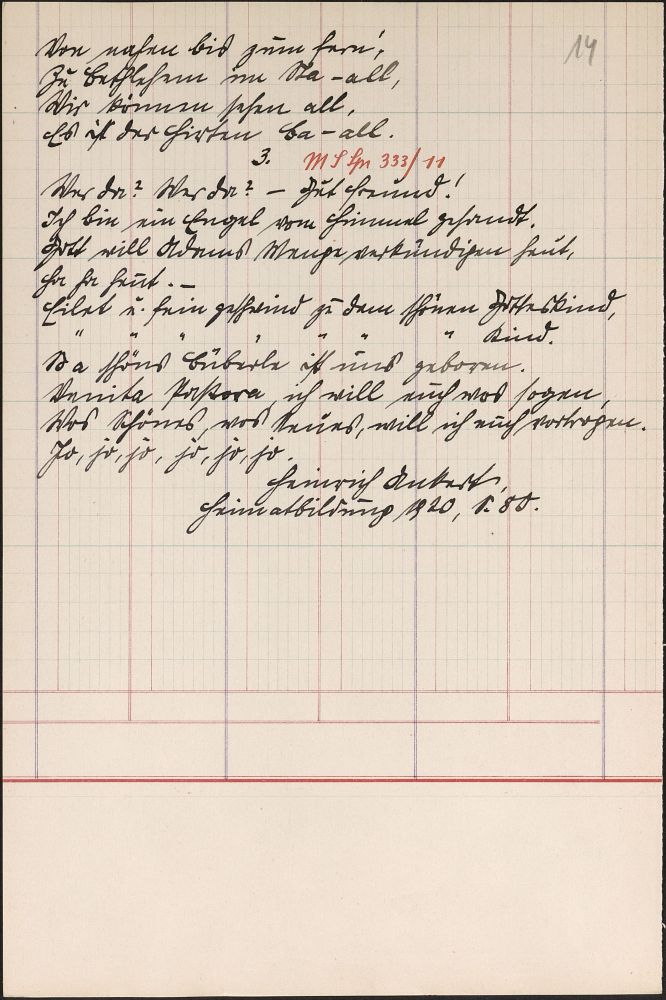 14
Von nahen bis zum fern',
Zu Bethlehem im Sta-all,
Wir können sehen all,
Es ist der Hirten Ba-all.
3. 333/11
Wer da? Wer da? – Gut Freund!
Ich bin ein Engel vom Himmel gesandt.
Gott will Adams Menge verkündigen heut,
ha ha heut. –
Eilet u. sein geschwind zu dem schönen Gotteskind,
" " " " " " " Kind.
A schöns Büberle ist uns geboren.
Venita Pastora, ich will euch was sogen,
Wos Schönes, wos Neues, will ich euch vortrogen.
Jo, jo, jo, jo, jo, jo.
Heinrich Ankert,
Heimatbildung 1920, S. 80.